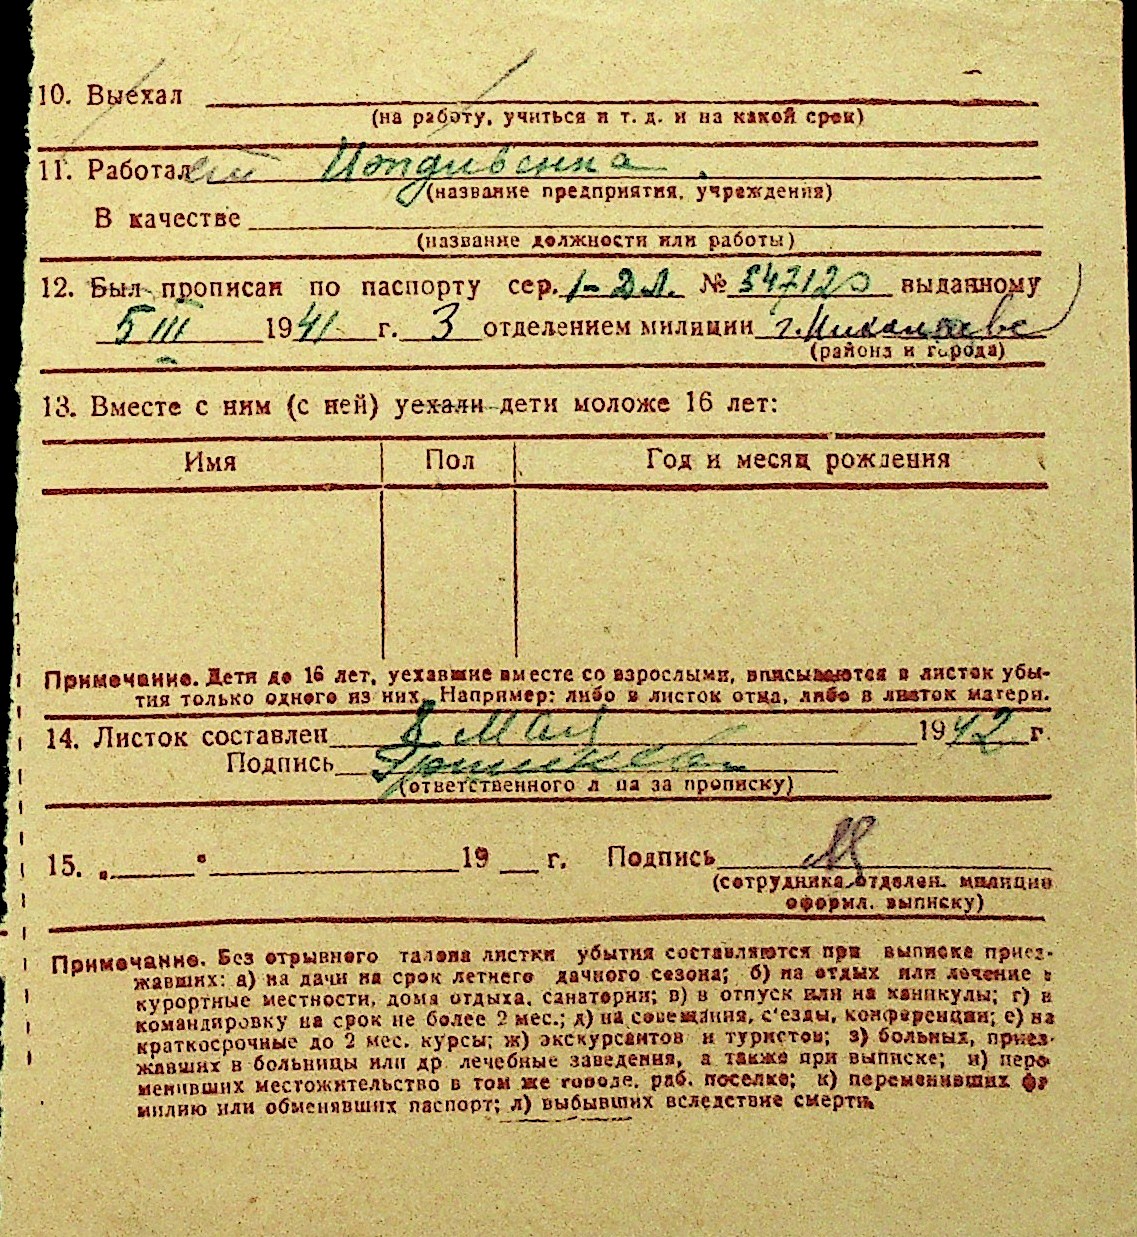 10. Выехал
(на работу, учиться и т. д. и на какой срок)
11. Работал Иждивенка
(название предприятия, учреждения)
В качестве
(название должности или работы)
12. Был прописан по паспорту сер. 1-ДЛ. № 547120 выданному
5 III 1941 г. 3 отделением милиции г.
(района и города)
13. Вместе с ним (с ней) уехали дети моложе 16 лет:
Имя Пол Год и месяц рождения
Примечание. Дети до 16 лет, уехавшие вместе со взрослыми, вписываются в листок убы-
тия только одного из них. Например: либо в листок отца, либо в листок матери.
14. Листок составлен 8 Мая 1942 г.
Подпись
(ответственного л ца за прописку)
15. „ " 19 г. Подпись
(сотрудника отделен. милиции
оформл. выписку)
Примечание. Без отрывного талона листки убытия составляются при выписке приез-
жавших: а) на дачи на срок летнего дачного сезона; б) на отдых или лечение в
курортные местности, дома отдыха, санатории; в) в отпуск или на каникулы; г) в
командировку на срок не более 2 мес.; д) на совещания, с'езды, конференции; е) на
краткосрочные до 2 мес. курсы; ж) экскурсантов и туристов; з) больных, приез-
жавших в больницы или др лечебные заведения, а также при выписке; и) пере
менивших местожительство в том же городе, раб. поселке; к) переменивших фа
милию или обменявших паспорт; л) выбывших вследствие смерти.